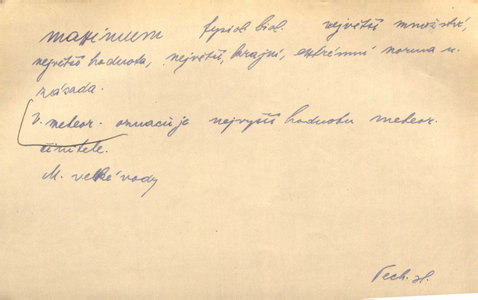 maximum fysiol. biol. největší množství,
největší hodnota, největší, krajní, extrémní norma n.
zásada.
V meteor. označuje nejvyšší hodnotu meteor.
činitele.
M. velké vody
Tech. sl.